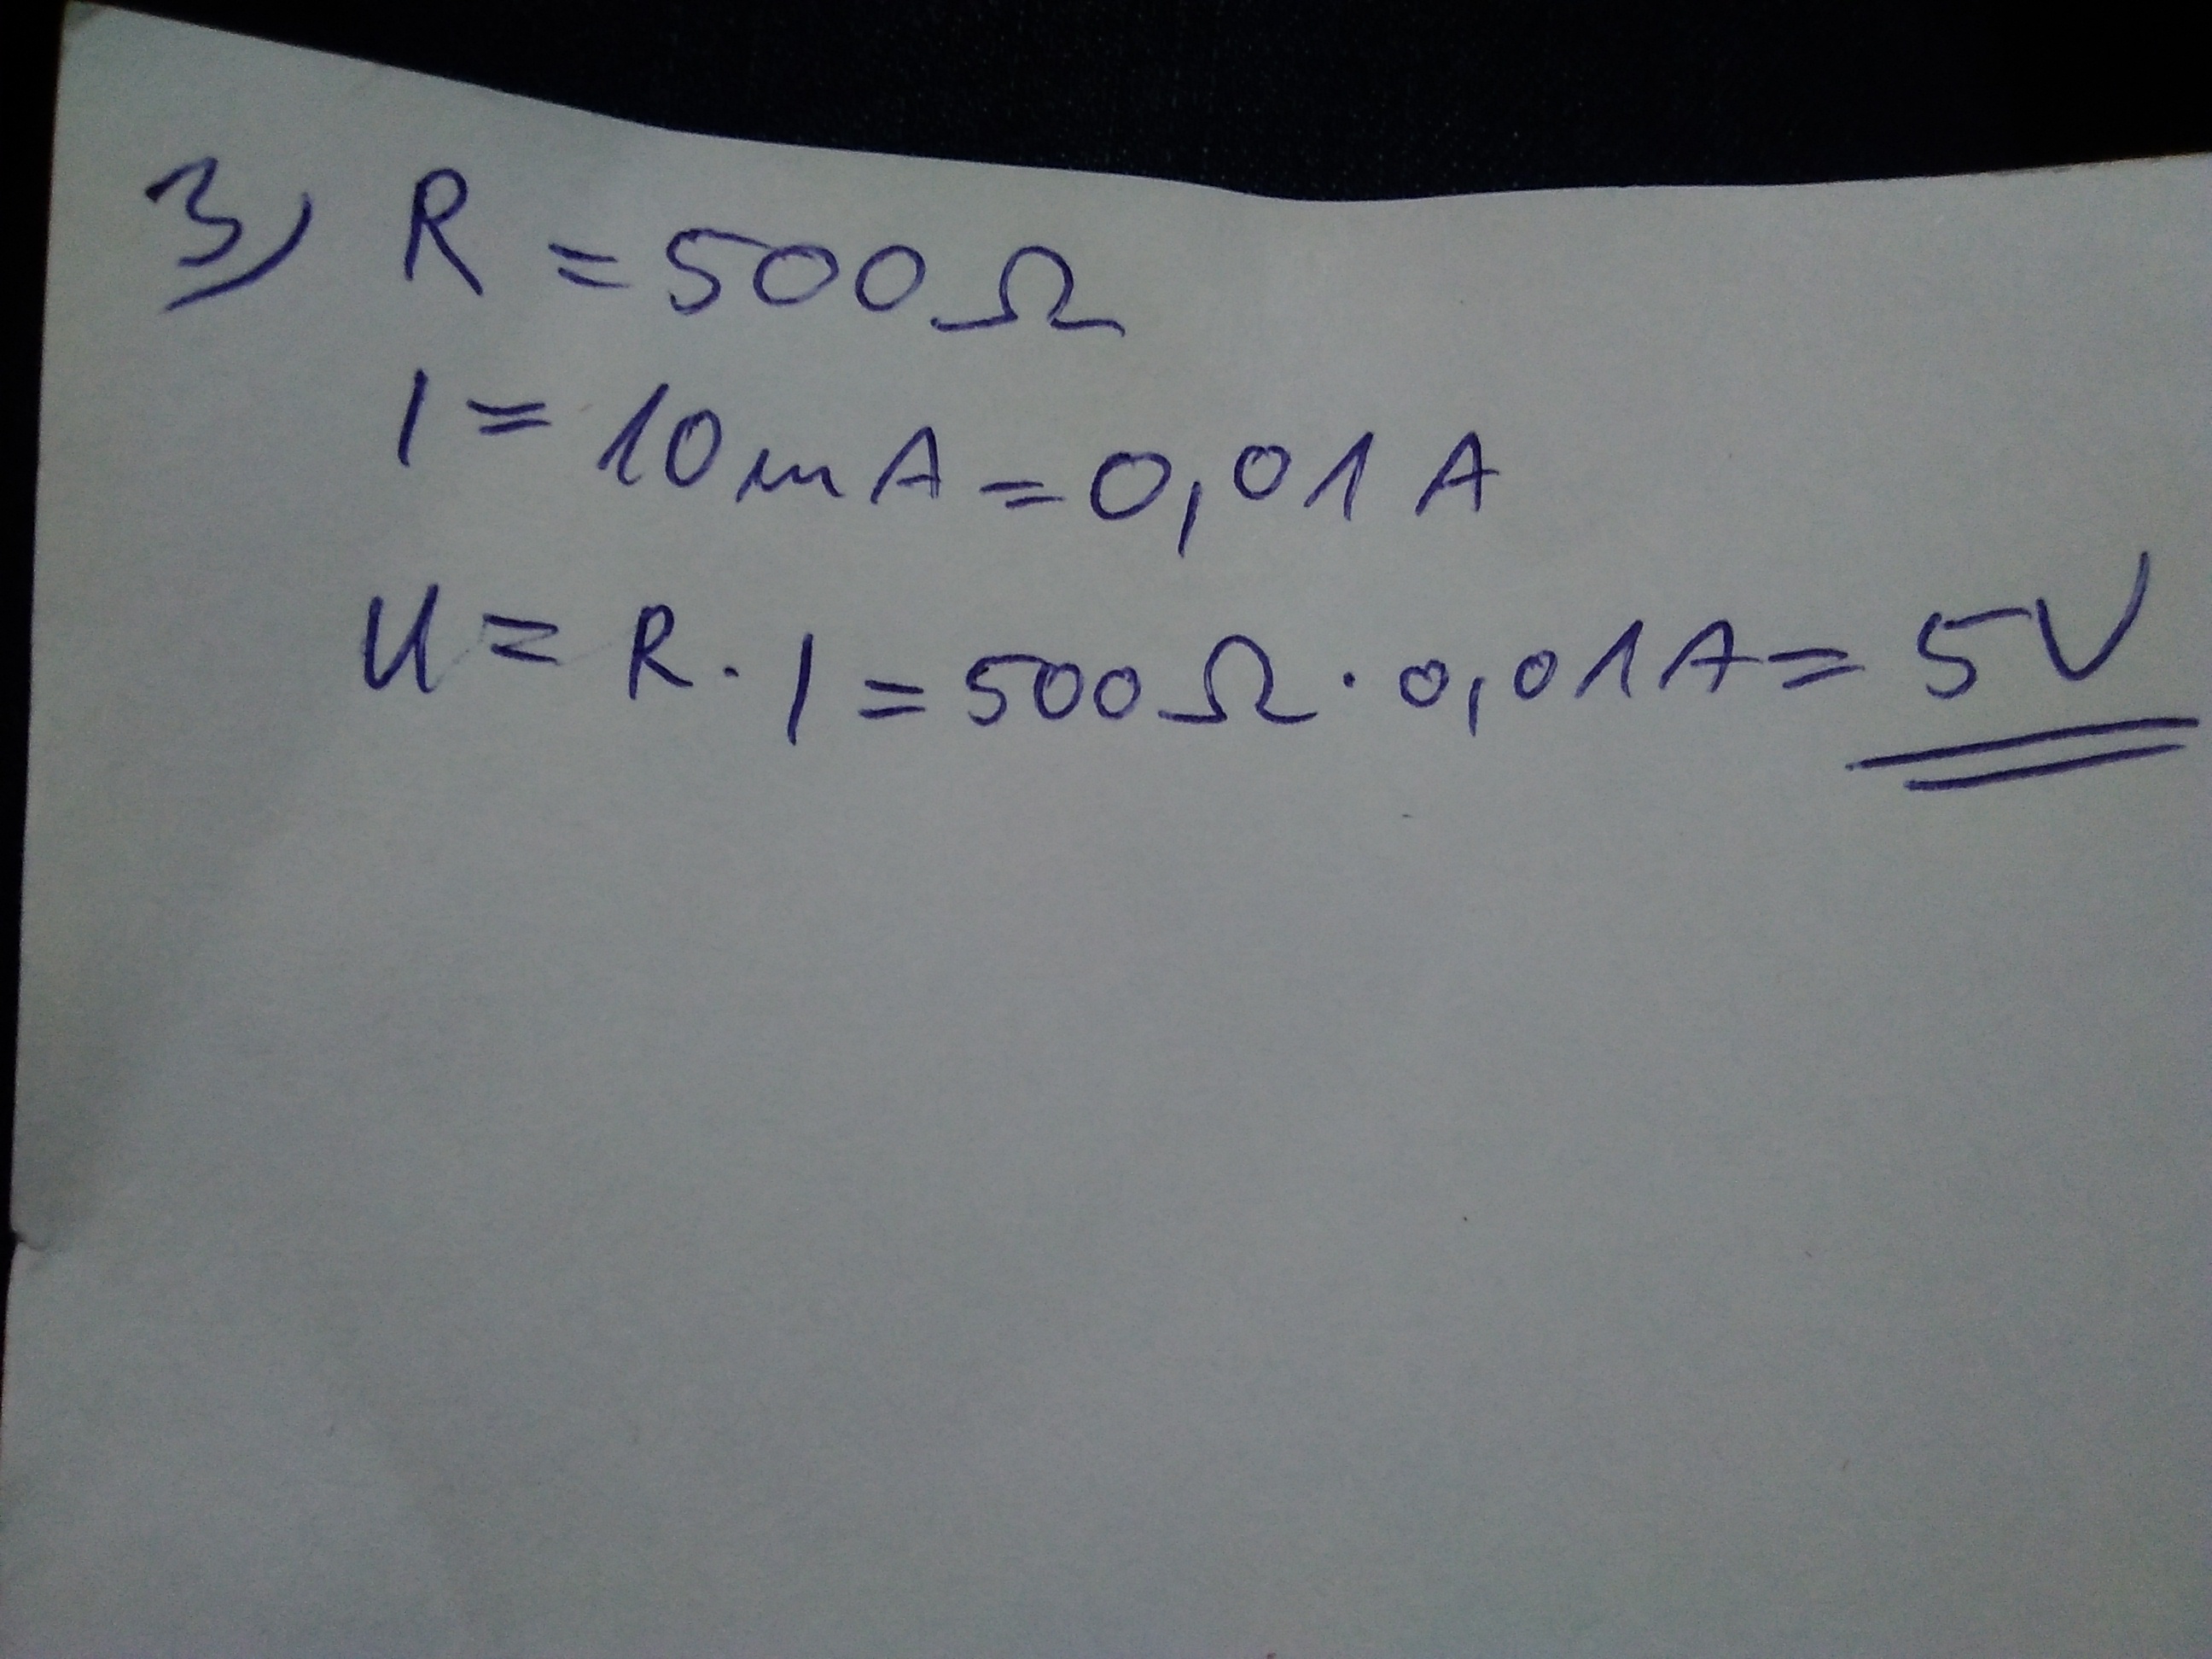 3) R = 500 Ω
I = 10 mA = 0,01 A
U = R · I = 500 Ω · 0,01 A = 5 V